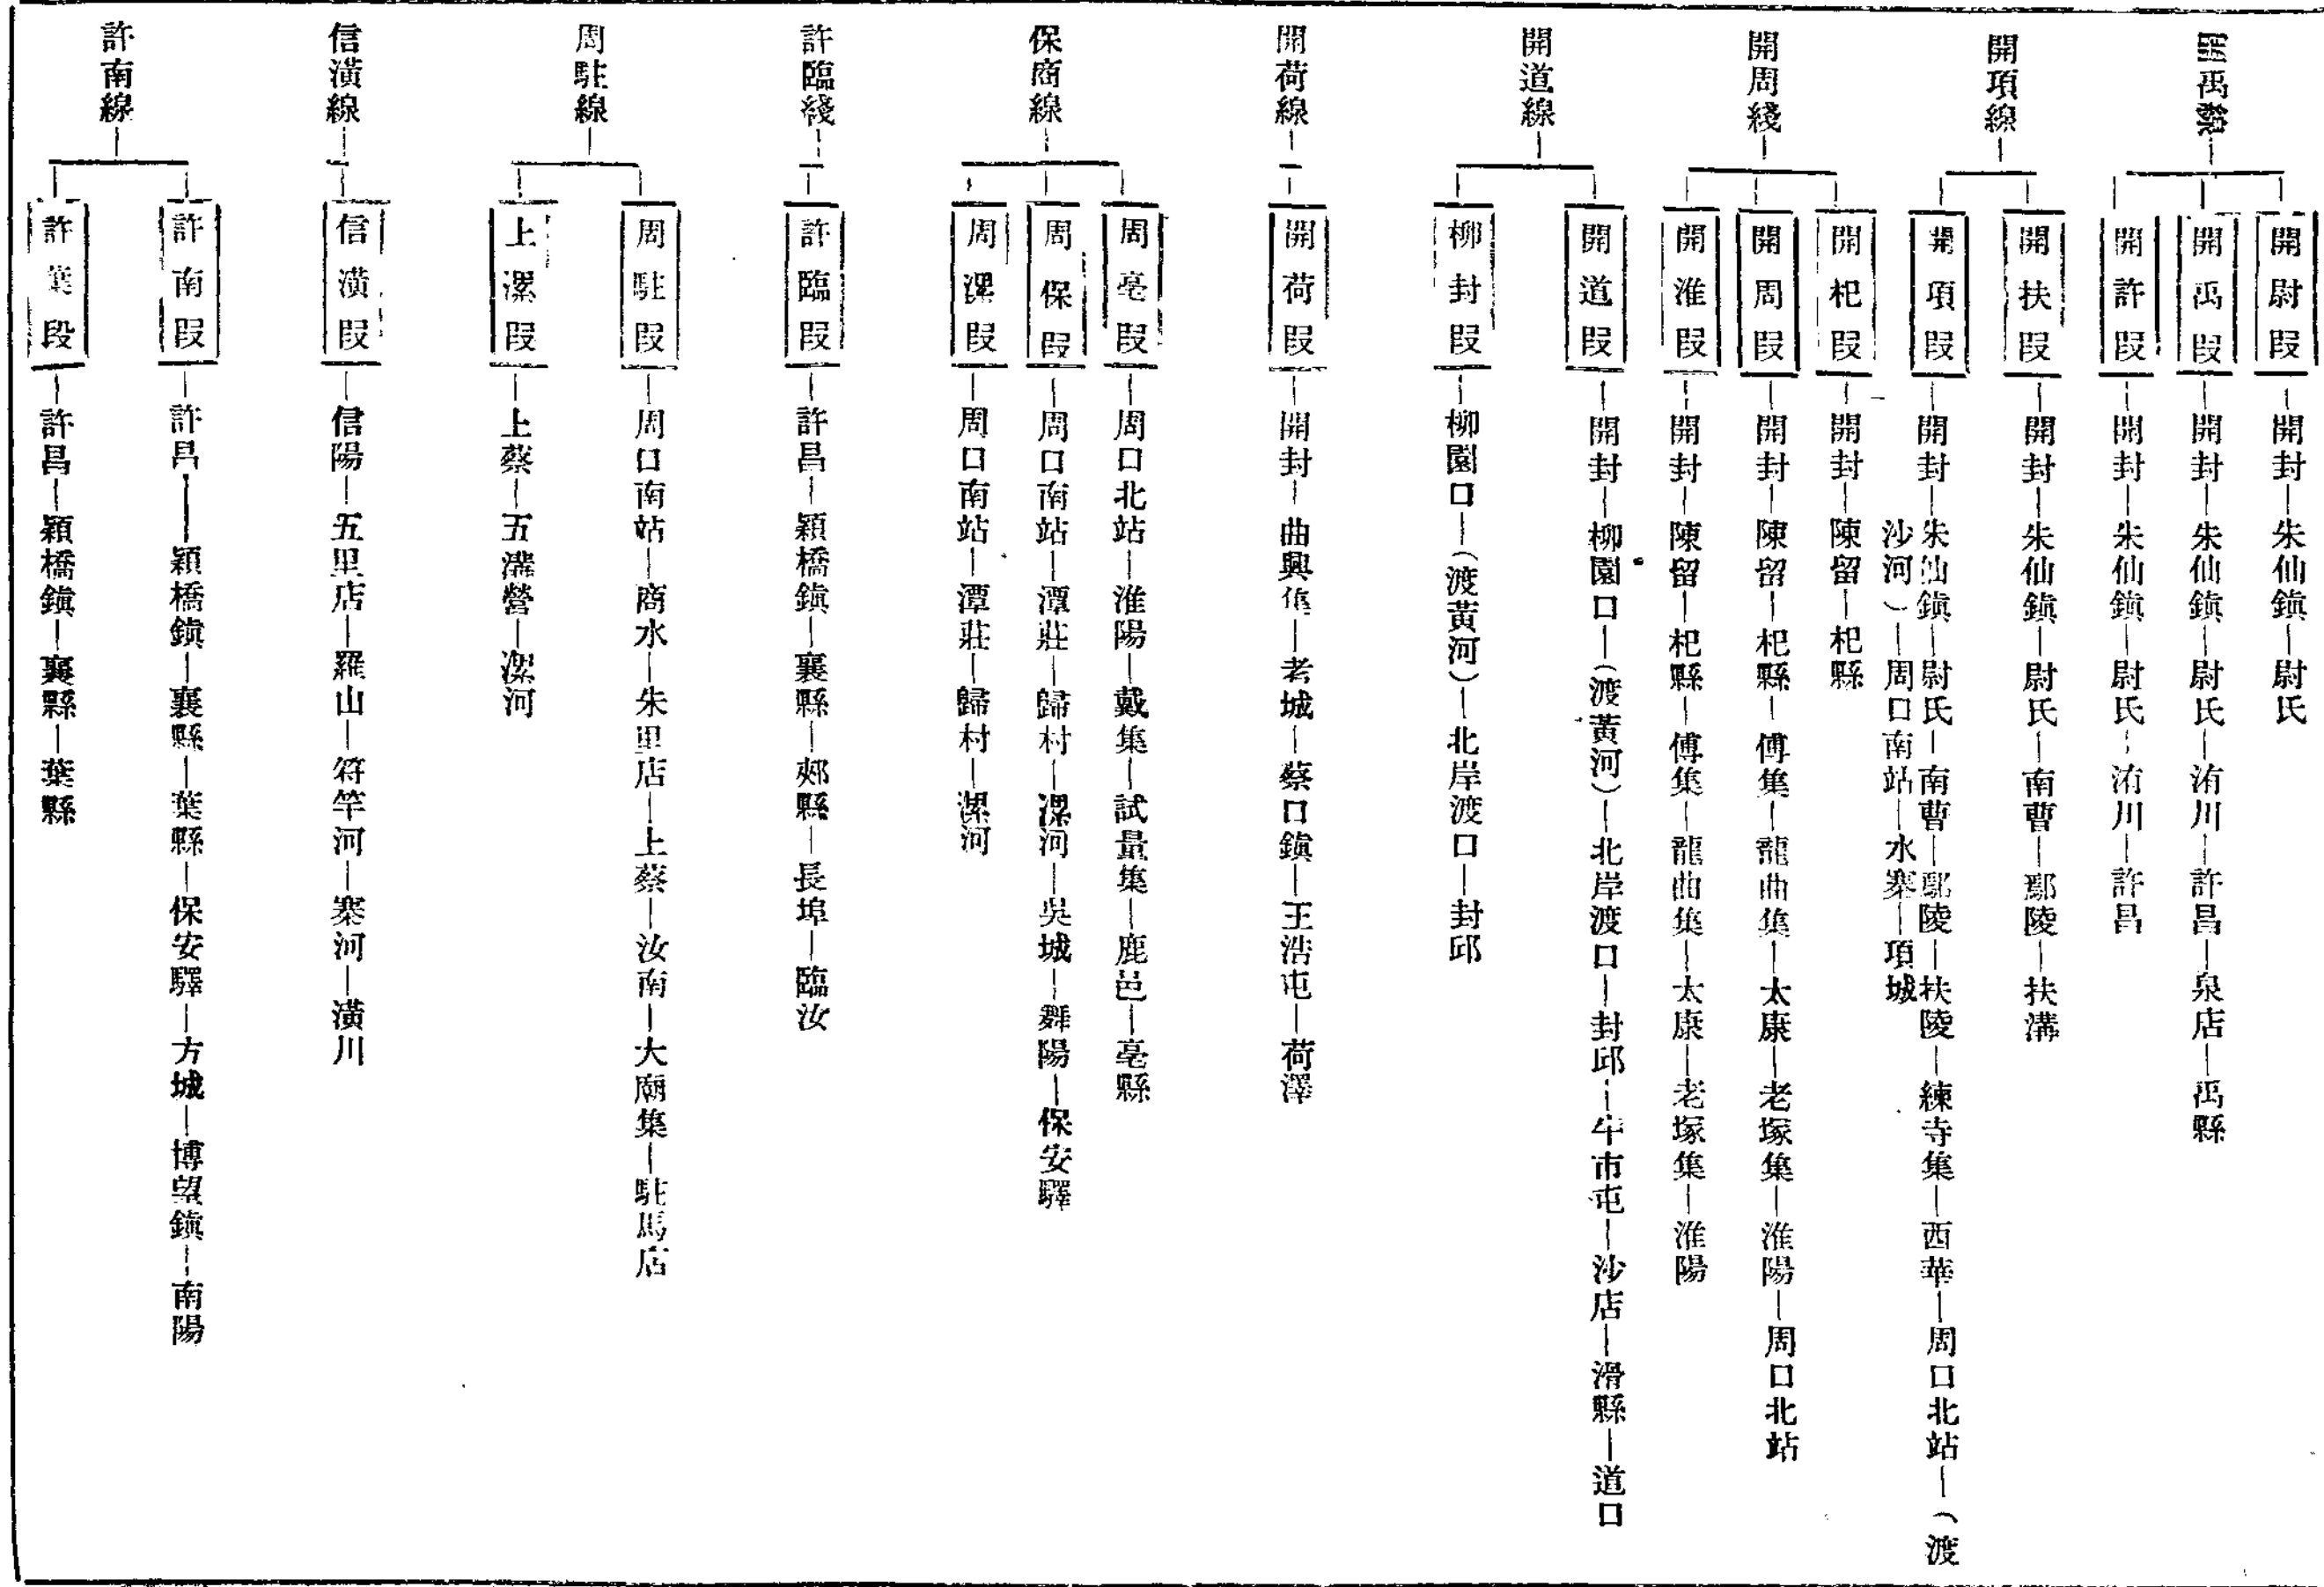 開禹線
開尉段
開封—朱仙鎮—尉氏
開禹段
開封—朱仙鎮—尉氏—洧川—許昌—泉店—禹縣
開許段
開封—朱仙鎮—尉氏—洧川—許昌
開項線
開扶段
開封—朱仙鎮—尉氏—南曹—鄢陵—扶溝
開項段
開封—朱仙鎮—尉氏—南曹—鄢陵—扶陵—練寺集—西華—周口北站—(渡
沙河)—周口南站—水寨—項城
開周綫
開杞段
開封—陳留—杞縣
開周段
開封—陳留—杞縣—傅集—龍曲集—太康—老塚集—淮陽—周口北站
開淮段
開封—陳留—杞縣—傅集—龍曲集—太康—老塚集—淮陽
開道線
開道段
開封—柳園口—(渡黃河)—北岸渡口—封邱—牛市屯—沙店—滑縣—道口
柳封段
柳園口—(渡黃河)—北岸渡口—封邱
開荷線
開荷段
開封—曲興集—老城—蔡口鎮—王浩屯—荷澤
保商線
周亳段
周口北站—淮陽—戴集—試量集—鹿邑—亳縣
周保段
周口南站—潭莊—歸村—漯河—吳城—舞陽—保安驛
周漯段
周口南站—潭莊—歸村—漯河
許臨綫
許臨段
許昌—穎橋鎮—襄縣—郟縣—長埠—臨汝
周駐線
周駐段
周口南站—商水—朱里店—上蔡—汝南—大廟集—駐馬店
上漯段
上蔡—五溝營—漯河
信潢線
信潢段
信陽—五里店—羅山—符竿河—寨河—潢川
許南線
許南段
許昌—穎橋鎮—襄縣—葉縣—保安驛—方城—博望鎮—南陽
許葉段
許昌—穎橋鎮—襄縣—葉縣